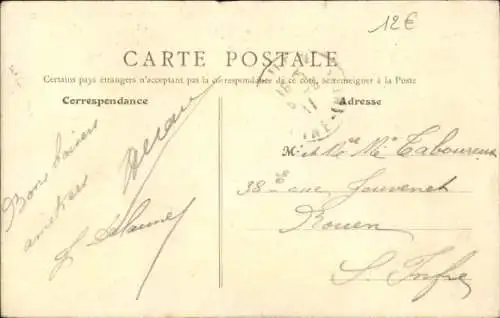 12€
CARTE POSTALE
Certains pays étrangers n'acceptant pas la correspondance de ce côté, se renseigner à la Poste
Correspondance
Bons baisers
amicales
Adresse
M et Me Me Taboureux
38 rue Jouvenet
Rouen
S. Infre